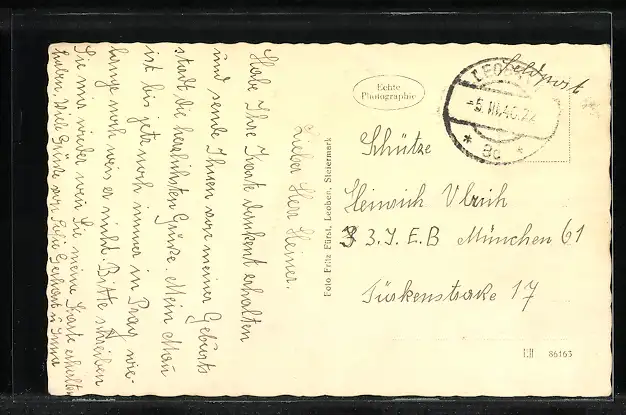 Lieber Herr Heiner.
Habe Ihre Karte dankent erhalten
und sende Ihnen von meiner Geburts
stadt die herzlichsten Grüße. Mein Man
ist bis jetz noch immer in Prag wie
lange noch weis er nicht. Bitte schreiben
Sie mir wieder wen Sie meine Karte erhalten
haben. Viele Grüße von Gerhart u
Echte
Photographie
Foto Fritz Fürst, Leoben, Steiermark
LEOBEN
-5.III.40.22
* 8c *
Feldpost
Schütze
Heinrich Ulrich
3 3. J. E. B München 61
Türkenstraße 17
LII 86163